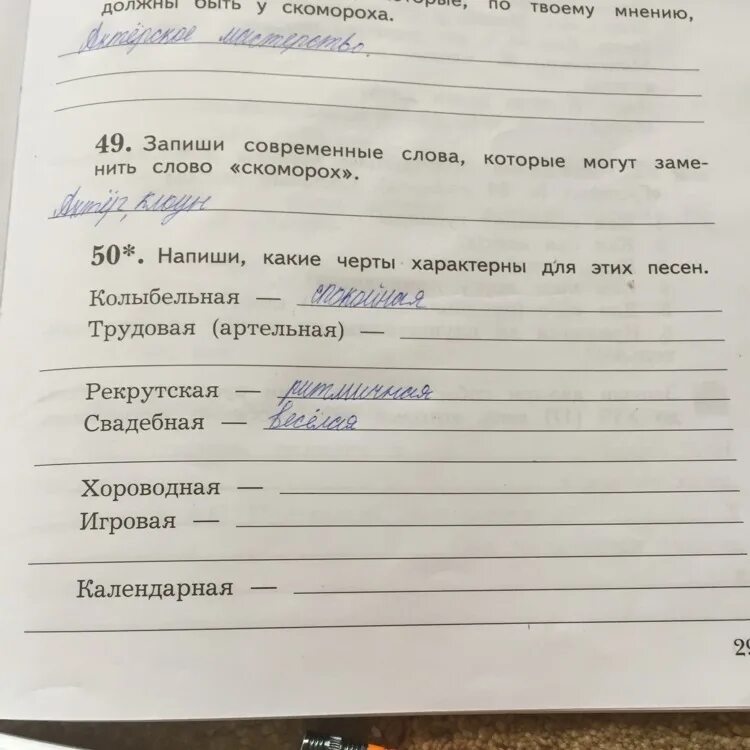 должны быть у скомороха. которые, по твоему мнению,
Актёрское мастерство.
49. Запиши современные слова, которые могут заме-
нить слово «скоморох».
Актёр, клоун
50*. Напиши, какие черты характерны для этих песен.
Колыбельная — спокойная
Трудовая (артельная) —
Рекрутская — ритмичная
Свадебная — весёлая
Хороводная —
Игровая —
Календарная —
29